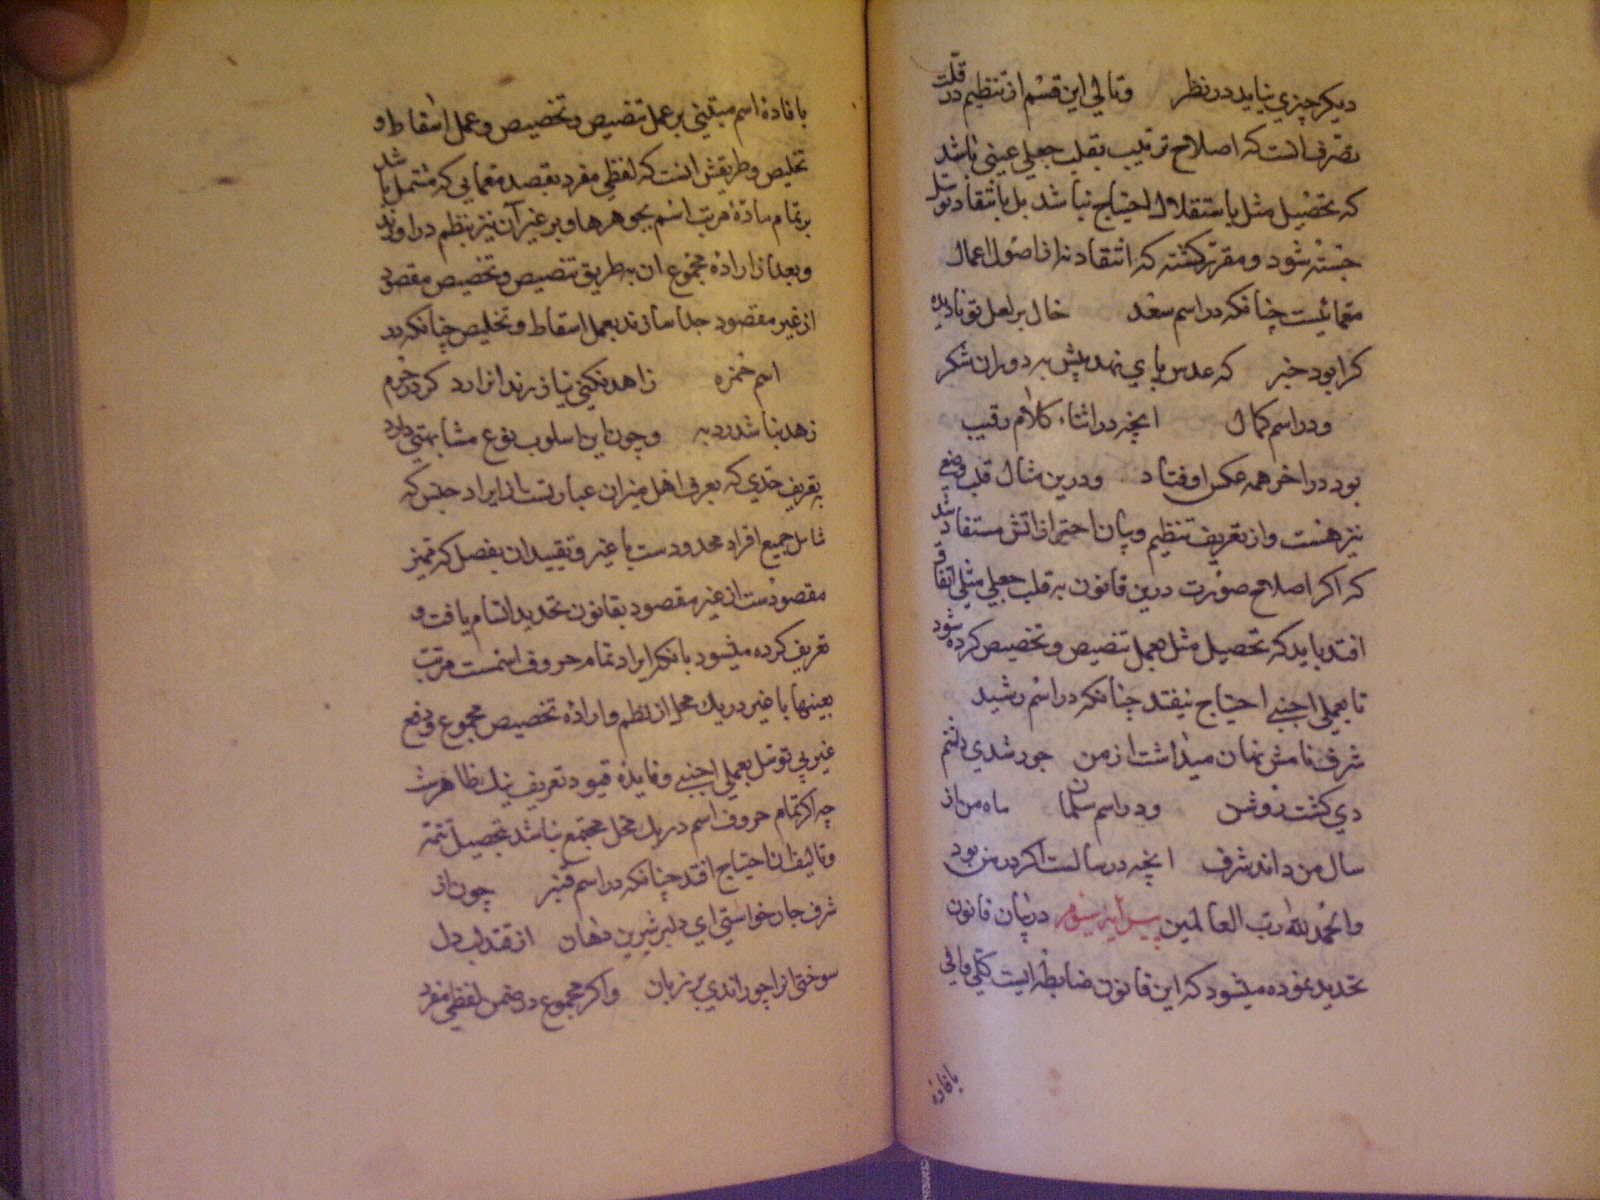 دیکر چیزی نیاید در نظر وتالی این قسم از تنظیم در قلت
تصرف انست که اصلاح ترتیب بقلب جعلی عینی باشد
که تحصیل مثل باستقلال احتیاج نباشد بل بانتقاد توسل
جسته شود و مقرر کشته که انتقاد نه از اصول اعمال
معمائیست چنانکه در اسم سعد خال بر لعل تو نادیده
کرا بود خبر که عدس پای نهد پیش به دوران شکر
ودر اسم کمال انچه در اثناء کلام رقیب
بود در اخر همه عکس اوفتاد ودرین مثال قلب وضعی
نیز هست واز تعریف تنظیم وبیان احترازاتش مستفاد شد
که اکر اصلاح صورت درین قانون به قلب جعلی مثلی اتفاق
افتد باید که تحصیل مثل بعمل تنصیص و تخصیص کرده شود
تا بعملی اجنبی احتیاج نیفتد چنانکه در اسم رشید
شرف نامش نهان میداشت از من جور شدی دانم
دی کشت روشن ودر اسم سلمان ماه من از
سال من داند شرف انچه در سالست اکر در من بود
والحمد لله رب العالمین پیرایه سوم در بیان قانون
تحدید نموده میشود که این قانون ضابطه ایست کلی وافی
بافاده
بافادهٔ اسم مبتنی بر عمل تنصیص و تخصیص و عمل اسقاط و
تخلیص وطریقش انست که لفظی مفرد بقصد معمایی که مشتمل باشد
بر تمام مادهٔ مرتب اسم بجوهرها و بر غیر آن نیز بنظم دراورند
وبعد از ارادهٔ مجموع ان به طریق تنصیص و تخصیص مقصود
از غیر مقصود جدا سازند بعمل اسقاط و تخلیص چنانکه در
اسم حمزه زاهد نکنی نیاز رند انرا رد کر در حرم
زهد نباشد رد به وچون این اسلوب نوع مشابهتی دارد
به تعریف حدی که بعرف اهل میزان عبارتست از ایراد جنس که
شامل جمیع افراد محدودست با غیر و تقیید ان بفصل که ممیز
مقصودست از غیر مقصود بقانون تحدید اتسام یافت و
تعریف کرده میشود بانکه ایراد تمام حروف اسمست مرتب
بعینها با غیر در یک محل از نظم وارادهٔ تخصیص مجموع و دفع
غیر بی توسل بعملی اجنبی وفایدهٔ قیود تعریف نیک ظاهرست
چه اکر تمام حروف اسم در یک محل مجتمع نباشد بتحصیل تتمه
وتالیف ان احتیاج افتد چنانکه در اسم قنبر چون از
شرف جان خواستی ای دلبر شیرین دهان از قند لب دل
سوختی انرا چو راندی بر زبان واکر مجموع در ضمن لفظی مفرد